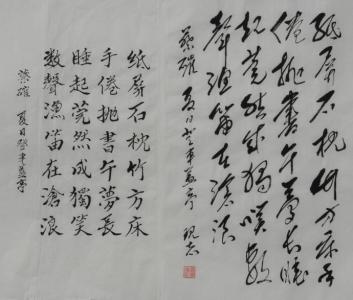 紙屏石枕竹方床手
倦拋書午夢長睡
起莞然成獨笑數
聲漁笛在滄浪
蔡確 夏日登車蓋亭
紙屏石枕竹方床
手倦拋書午夢長
睡起莞然成獨笑
數聲漁笛在滄浪
蔡確 夏日登車蓋亭